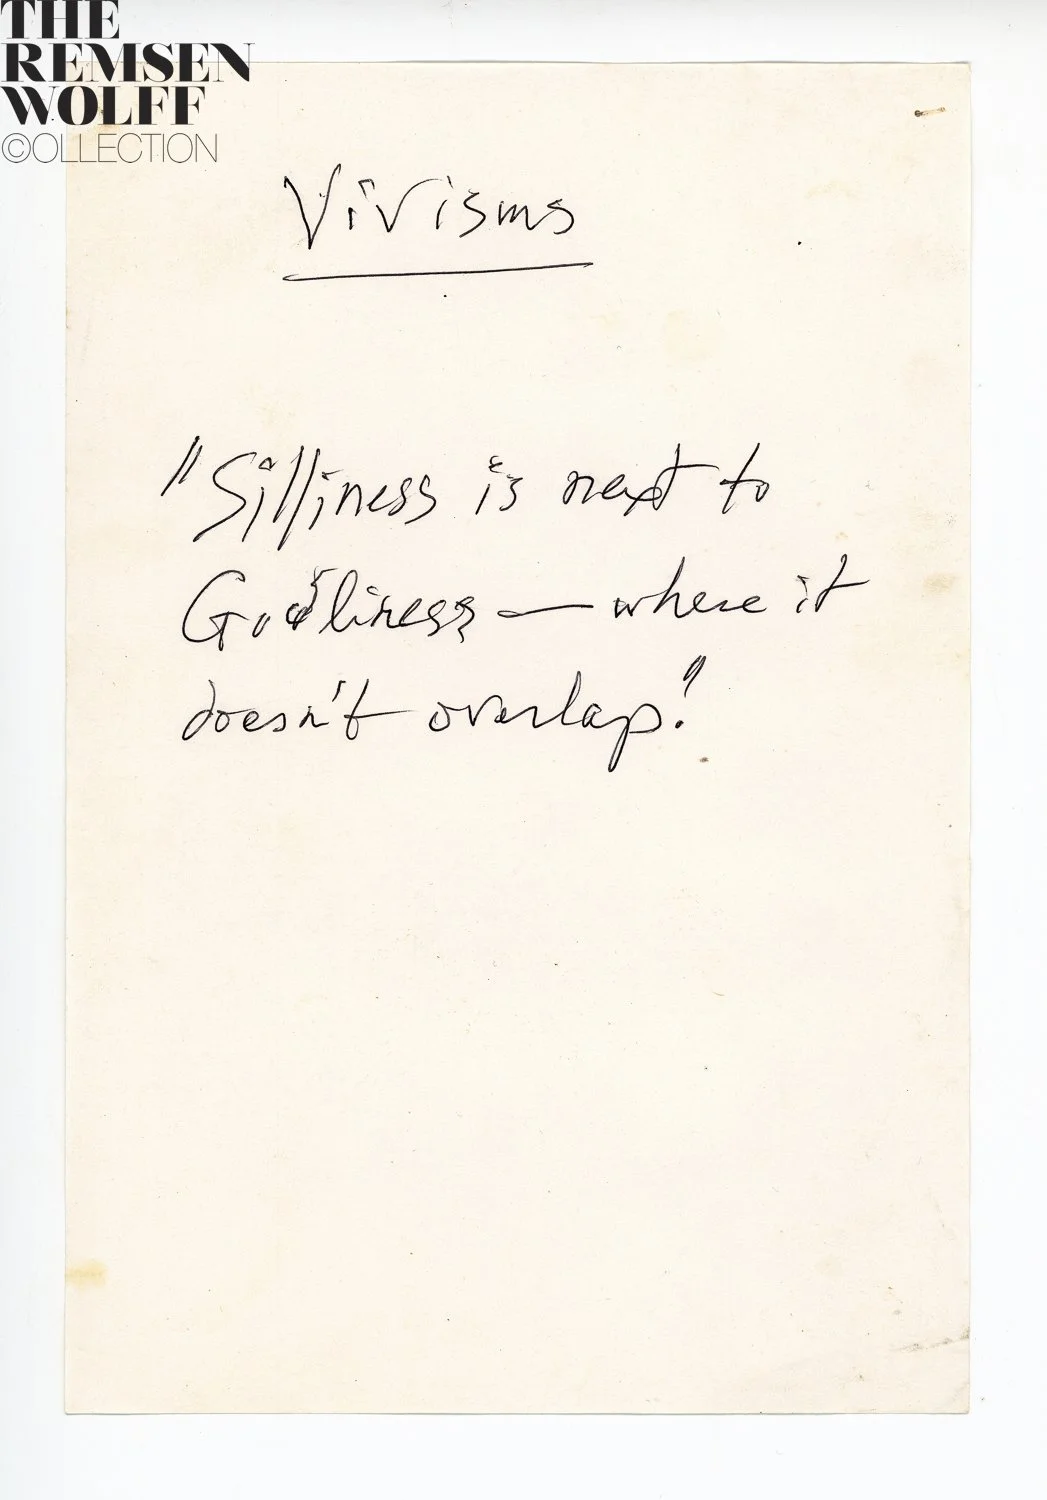 THE
REMSEN
WOLFF
©OLLECTION
Vivisms
"Silliness is next to
Godliness — where it
doesn't overlap."